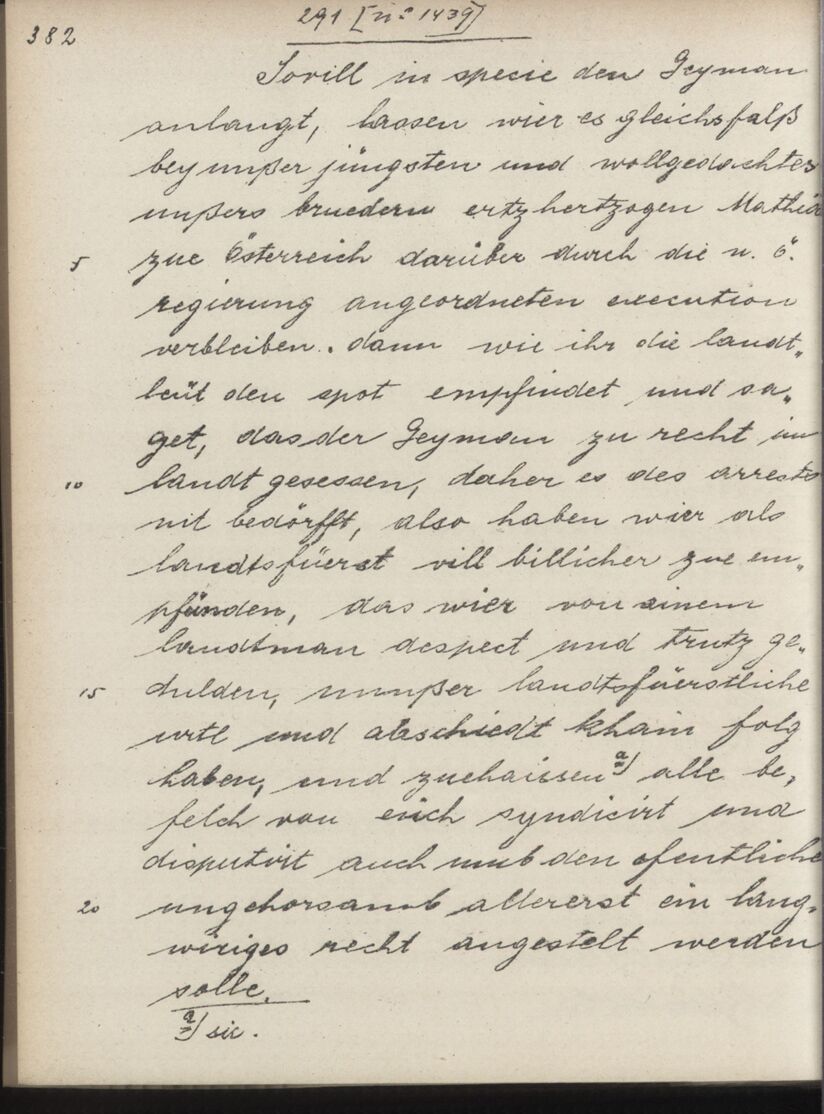 291 [nº 1439]
382
Sovill in specie den Geyman
anlangt, lassen wier es gleichsfalß
bey unßer jüngsten und wollgedachtes
unßers bruedern ertzhertzogen Mathia
5 zue Österreich darüber durch die n. ö.
regierung angeordneten execution
verbleiben. dann wie ihr die landt„
leüt den spot empfindet und sa„
get, das der Geyman zu recht im
10 landt gesessen, daher es des arrests
nit bedörfft, also haben wier als
landtsfüerst vill billicher zue em„
pfünden, das wier von einem
landtman despect und trutz ge„
15 dulden, unnßer landtsfüerstliche
urtl und abschiedt khain folg
haben, und zuehaissen a) alle be„
felch von euch syndicirt und
disputirt auch umb den ofentliche
20 ungehorsamb allererst ein lang„
würiges recht angestelt werden
solle.
a) sic.